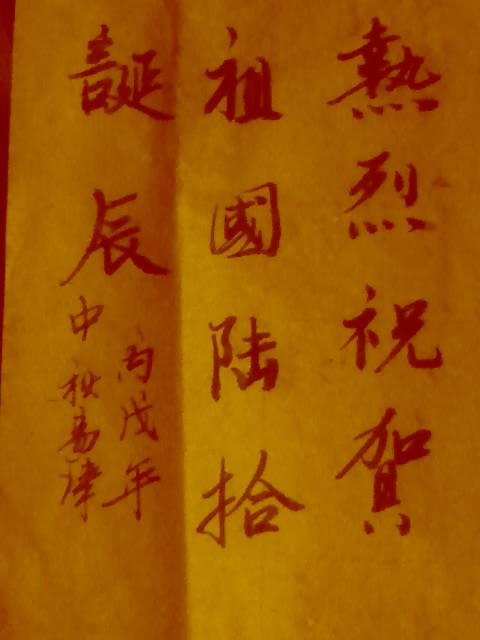 熱烈祝賀
祖國陸拾
誕辰
丙戌年
中秋易津